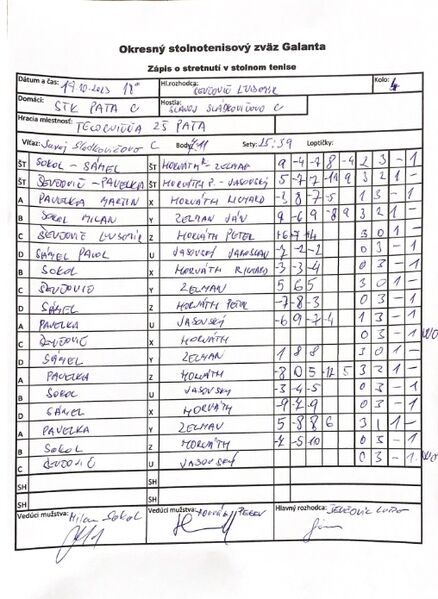 Okresný stolnotenisový zväz Galanta
Zápis o stretnutí v stolnom tenise
Dátum a čas: 19.10.2023 18⁰⁰ Hl.rozhodca: ŠEVČOVIČ ĽUBOMÍR Kolo: 4
Domáci: STK PATA C Hostia: SLAVOJ SLÁDKOVIČOVO C
Hracia miestnosť: TELOCVIČŇA ZŠ PATA
Víťaz: Slavoj Sládkovičovo C Body: Sety: 25:39 Loptičky:
ŠT SOKOL - SÁMEL ŠT HORVÁTH R - ZELMAN 9 -4 -7 8 -4 2 3 - 1
ŠT ŠEVČOVIČ - PAVELKA ŠT HORVÁTH P. - JASOVSKÝ 5 -7 3 2 1 -
A PAVELKA MARTIN X HORVÁTH RICHARD -3 8 -7 -5 1 3 - 1
B SOKOL MILAN Y ZELMAN JÁN 9 -6 9 -8 9 3 2 1 -
C ŠEVČOVIČ ĽUBOMÍR Z HORVÁTH PETER 3 0 1 -
D SÁMEL PAVOL U JASOVSKÝ JAROSLAV -7 -2 -2 0 3 - 1
B SOKOL X HORVÁTH RICHARD -3 -3 -4 0 3 - 1
C ŠEVČOVIČ Y ZELMAN 5 6 5 3 0 1 -
D SÁMEL Z HORVÁTH PETER -7 -8 -3 0 3 - 1
A PAVELKA U JASOVSKÝ -6 9 -7 -4 1 3 - 1
C ŠEVČOVIČ X HORVÁTH 0 3 - 1 W/O
D SÁMEL Y ZELMAN 1 8 8 3 0 1 -
A PAVELKA Z HORVÁTH -8 5 3 2 1 -
B SOKOL U JASOVSKÝ -3 -4 -5 0 3 - 1
D SÁMEL X HORVÁTH -9 -9 0 3 - 1
A PAVELKA Y ZELMAN 5 -8 8 6 3 1 1 -
B SOKOL Z HORVÁTH -5 0 3 - 1
C ŠEVČOVIČ U JASOVSKÝ 0 3 - 1 W/O
SH SH
SH SH
Vedúci mužstva: Milan Sokol Vedúci mužstva: HORVÁTH PETER Hlavný rozhodca: ŠEVČOVIČ ĽUBO